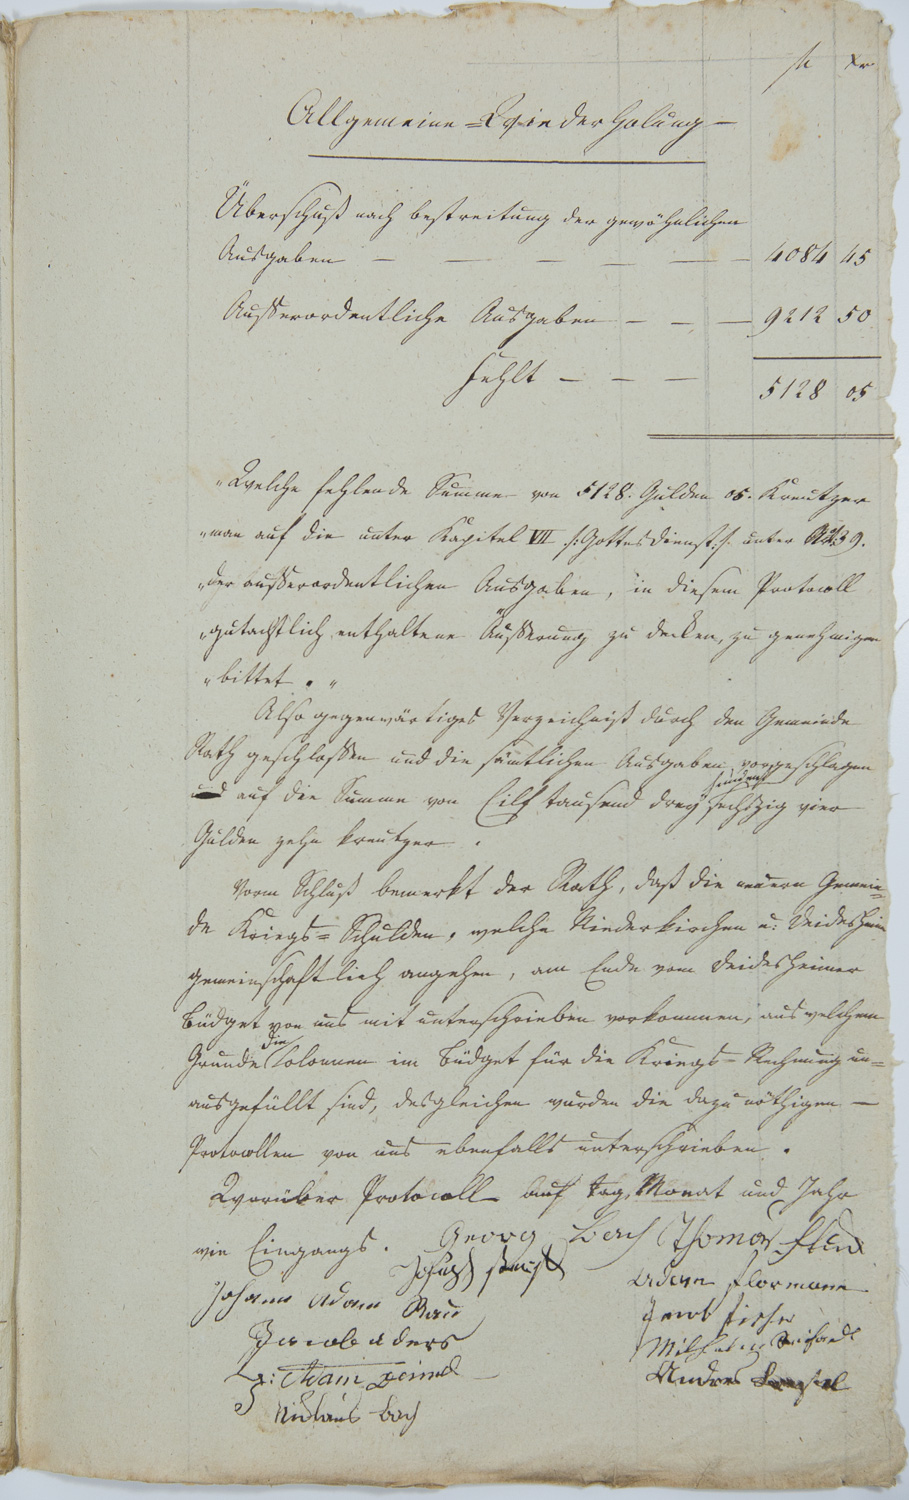 fl Xr
Allgemeine = Wiederholung —
Überschuß nach bestreitung der gewöhnlichen
Ausgaben — — — — — — 4084 45
Ausserordentliche Ausgaben — — — 9212 50
Fehlt — — — 5128 05
„Welche fehlende Summe von 5128. Gulden 05. Kreutzer
„man auf die unter Kapitel VII /:Gottesdienst:/ unter 39.
„der ausserordentlichen Ausgaben, in diesem Protocoll
„gutachtlich enthaltene Äusserung zu decken, zu genehmigen
„bittet."
Also gegenwärtiges Verzeichniß durch den Gemeinde
Rath geschlossen und die sämtlichen Ausgaben vorgeschlagen
und auf die Summe von Eilf tausend drey hundert sechszig vier
Gulden zehn kreutzer.
Vorm Schluß bemerkt der Rath, daß die neuern Gemein=
de Kriegs=Schulden, welche Niederkirchen u: Deidesheim
gemeinschaftlich angehen, am Ende vom Deidesheimer
Büdget von uns mit unterschrieben vorkommen, aus welchem
Grunde die Colonnen im Büdget für die Kriegs=Rechnung un=
ausgefüllt sind, desgleichen wurden die dazu nöthigen —
Protocollen von uns ebenfalls unterschrieben.
Worüber Protocoll auf Tag, Monat und Jahr
wie Eingangs. Georg Bach Thomas
Joseph
Johann Adam Adam
Jacob
Jacob Wilhelm
Adam Andres
Niklaus Bach